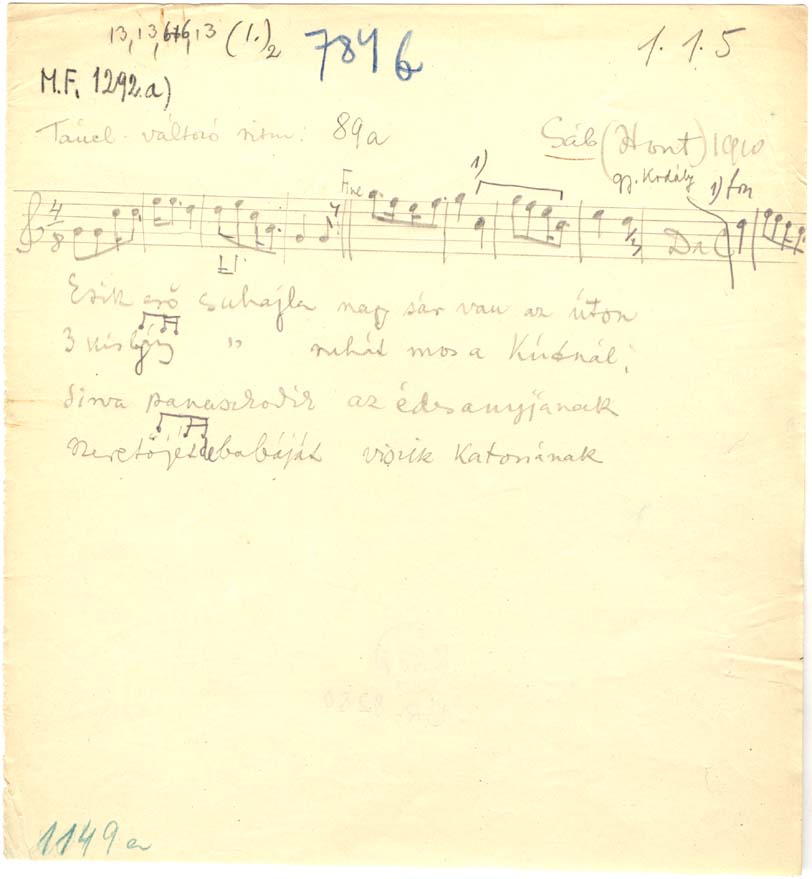 13, 13, 6+6, 13 (1.)2 784b 1. 1. 5
M.F. 1292.a)
Táncl. változó ritm. 89a Sáb (Hont) 1910
gy. Kodály
Fine 1) 1) fon
4/8 D.C.
Esik eső csuhajla nagy sár van az úton
3 kislány " ruhát mos a Kútnál;
Sirva panaszkodik az édesanyjának
Szeretőjét de babáját viszik katonának
1149